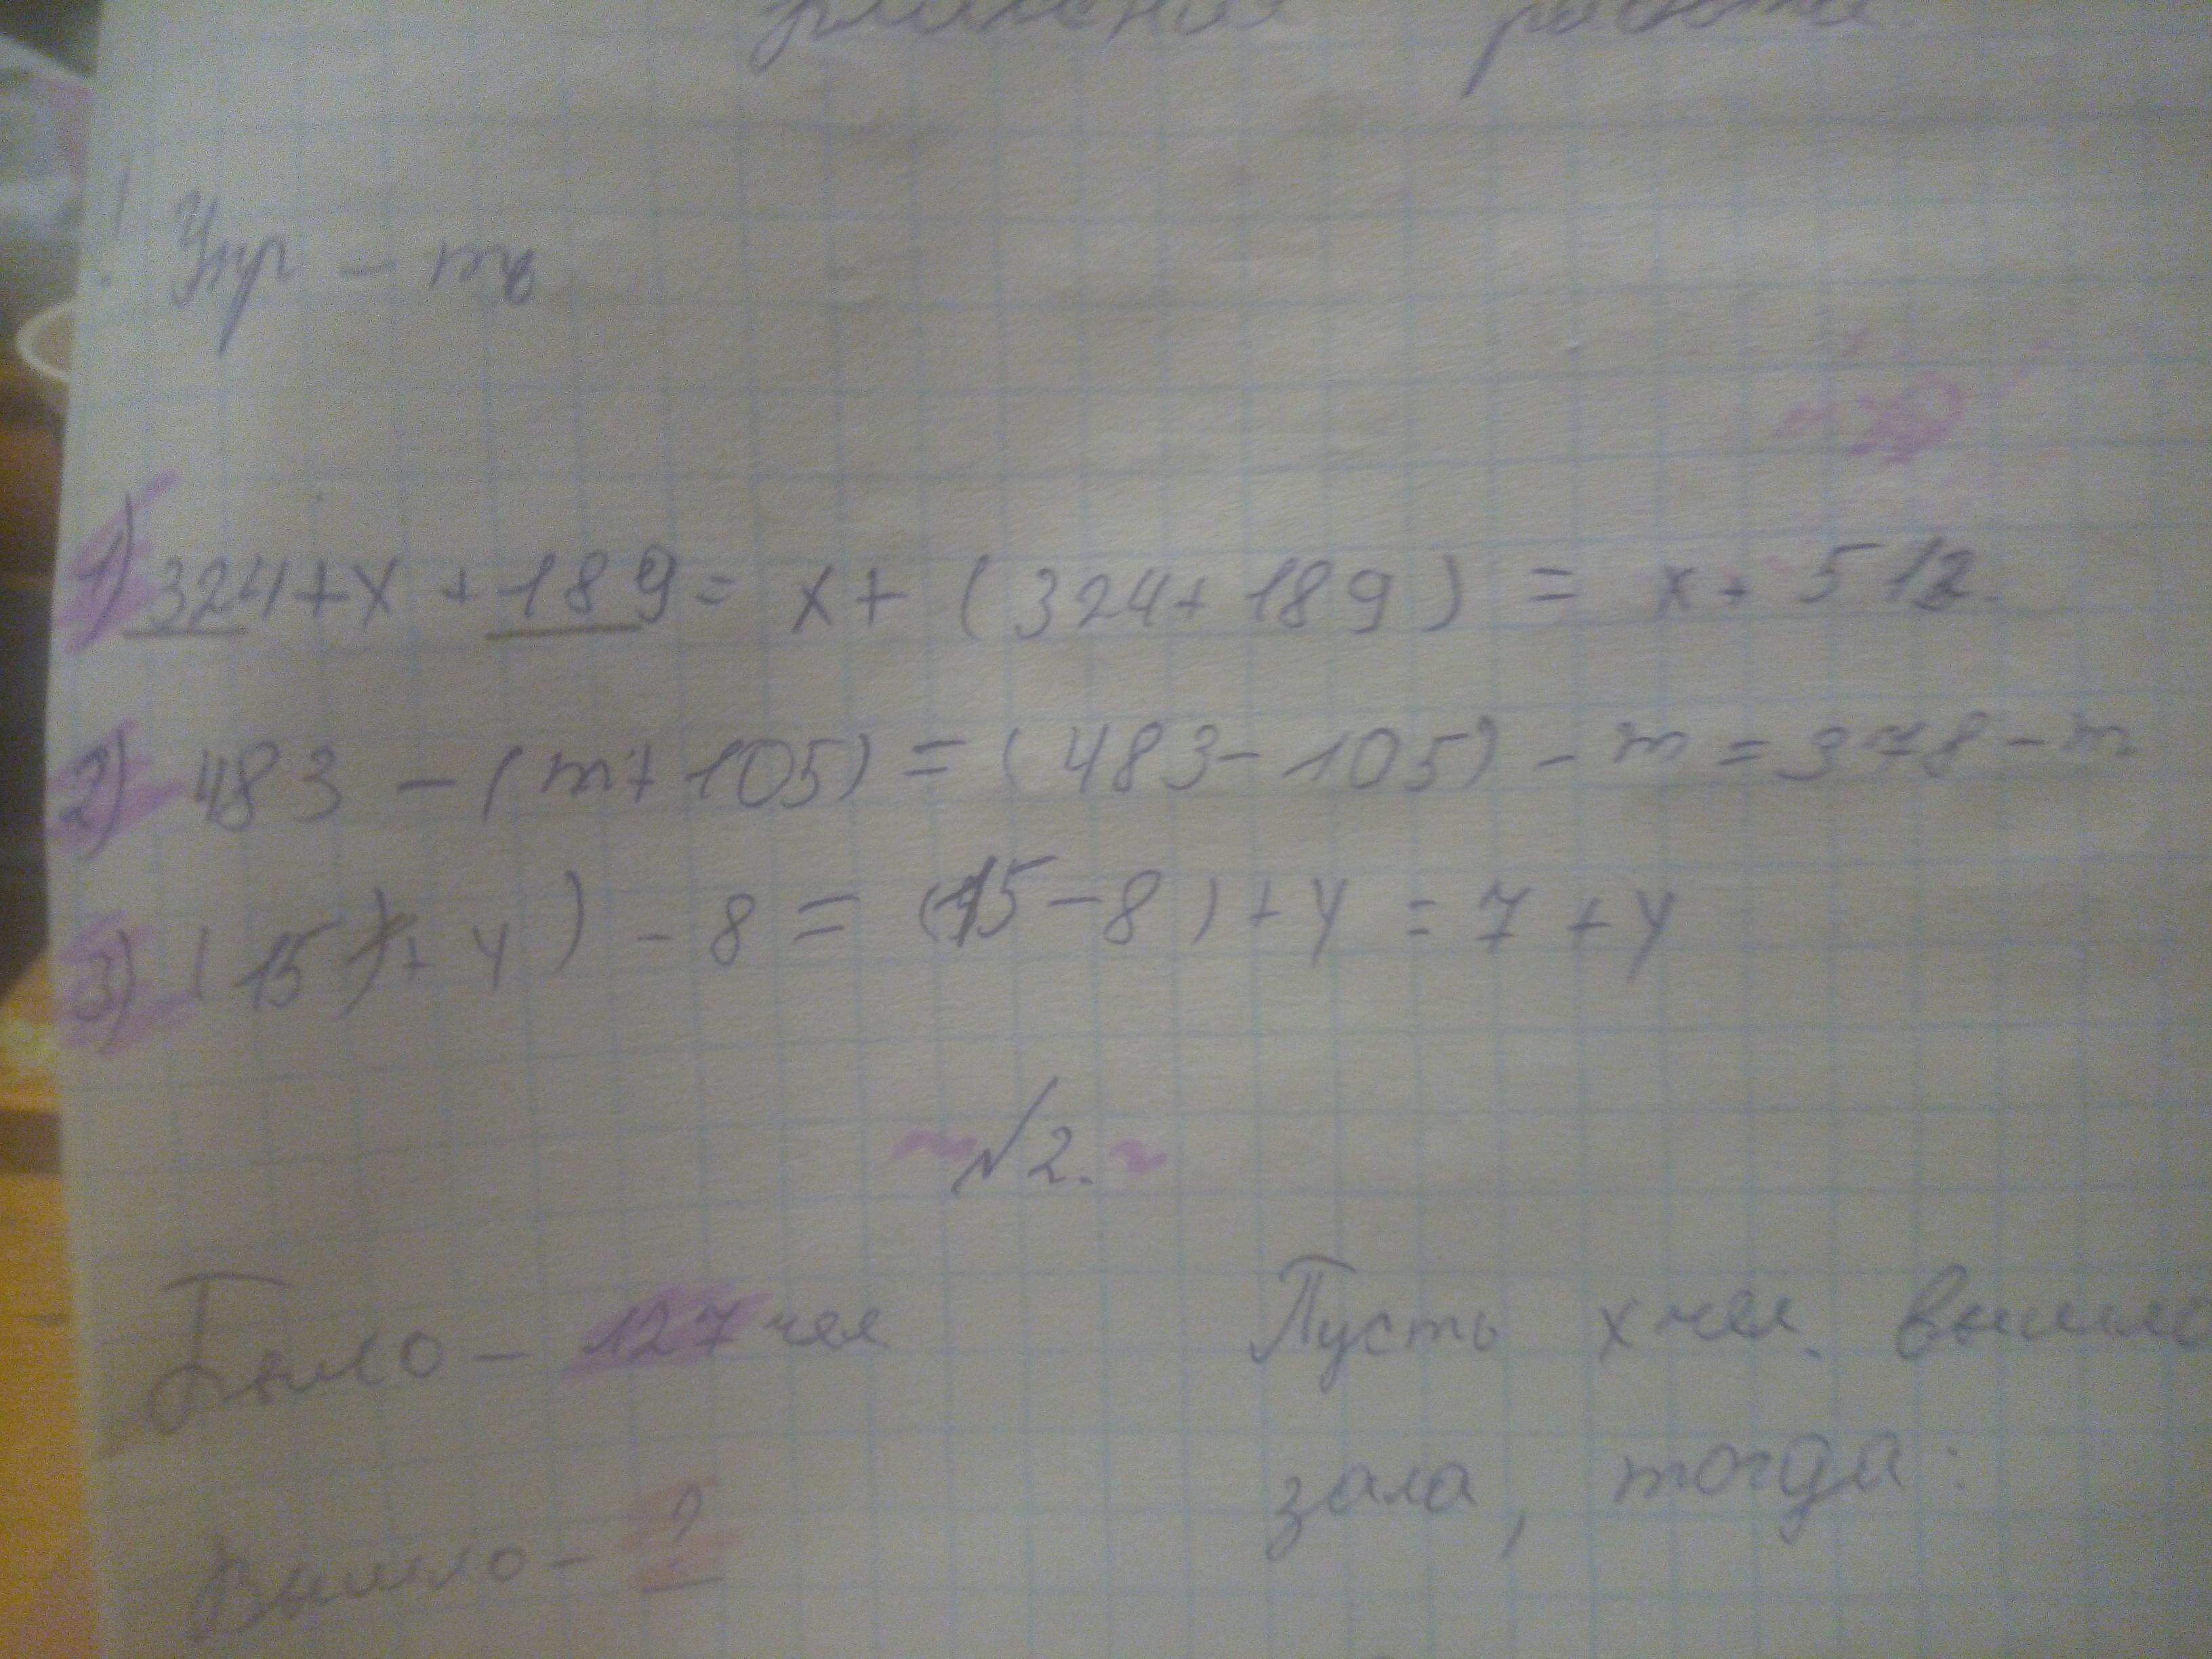 работа
! Упр-ть
1) 324+х+189= х+(324+189) = х+512.
2) 483-(m+105)=(483-105)-m=378-m
3) (15+y)-8=(15-8)+y=7+y
~№2.~
Было-127 чел
Пусть х чел. вышло
зала, тогда:
Вышло-?